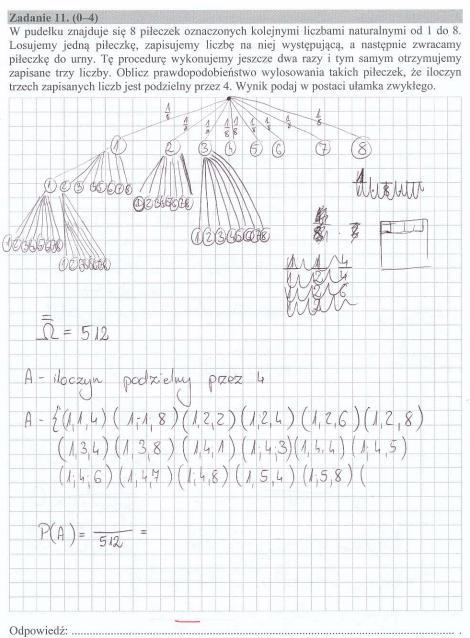 Zadanie 11. (0–4)
W pudełku znajduje się 8 piłeczek oznaczonych kolejnymi liczbami naturalnymi od 1 do 8.
Losujemy jedną piłeczkę, zapisujemy liczbę na niej występującą, a następnie zwracamy
piłeczkę do urny. Tę procedurę wykonujemy jeszcze dwa razy i tym samym otrzymujemy
zapisane trzy liczby. Oblicz prawdopodobieństwo wylosowania takich piłeczek, że iloczyn
trzech zapisanych liczb jest podzielny przez 4. Wynik podaj w postaci ułamka zwykłego.
1/8 1/8 1/8 1/8 1/8
1 2 3 4 5 6 7 8
1 2 3 4 5 6 7 8 1 2 3 4 5 6 7 8 1 2 3 4 5 6 7 8
1 2 3 4 5 6 7 8
1 2 3 4 5 6 7 8
Ω = 512
A - iloczyn podzielny przez 4
A - {(1,1,4) (1,1,8) (1,2,2) (1,2,4) (1,2,6) (1,2,8)
(1,3,4) (1,3,8) (1,4,1) (1,4,3) (1,4,4) (1,4,5)
(1,4,6) (1,4,7) (1,4,8) (1,5,4) (1,5,8) (
P(A) = /512 =
Odpowiedź: